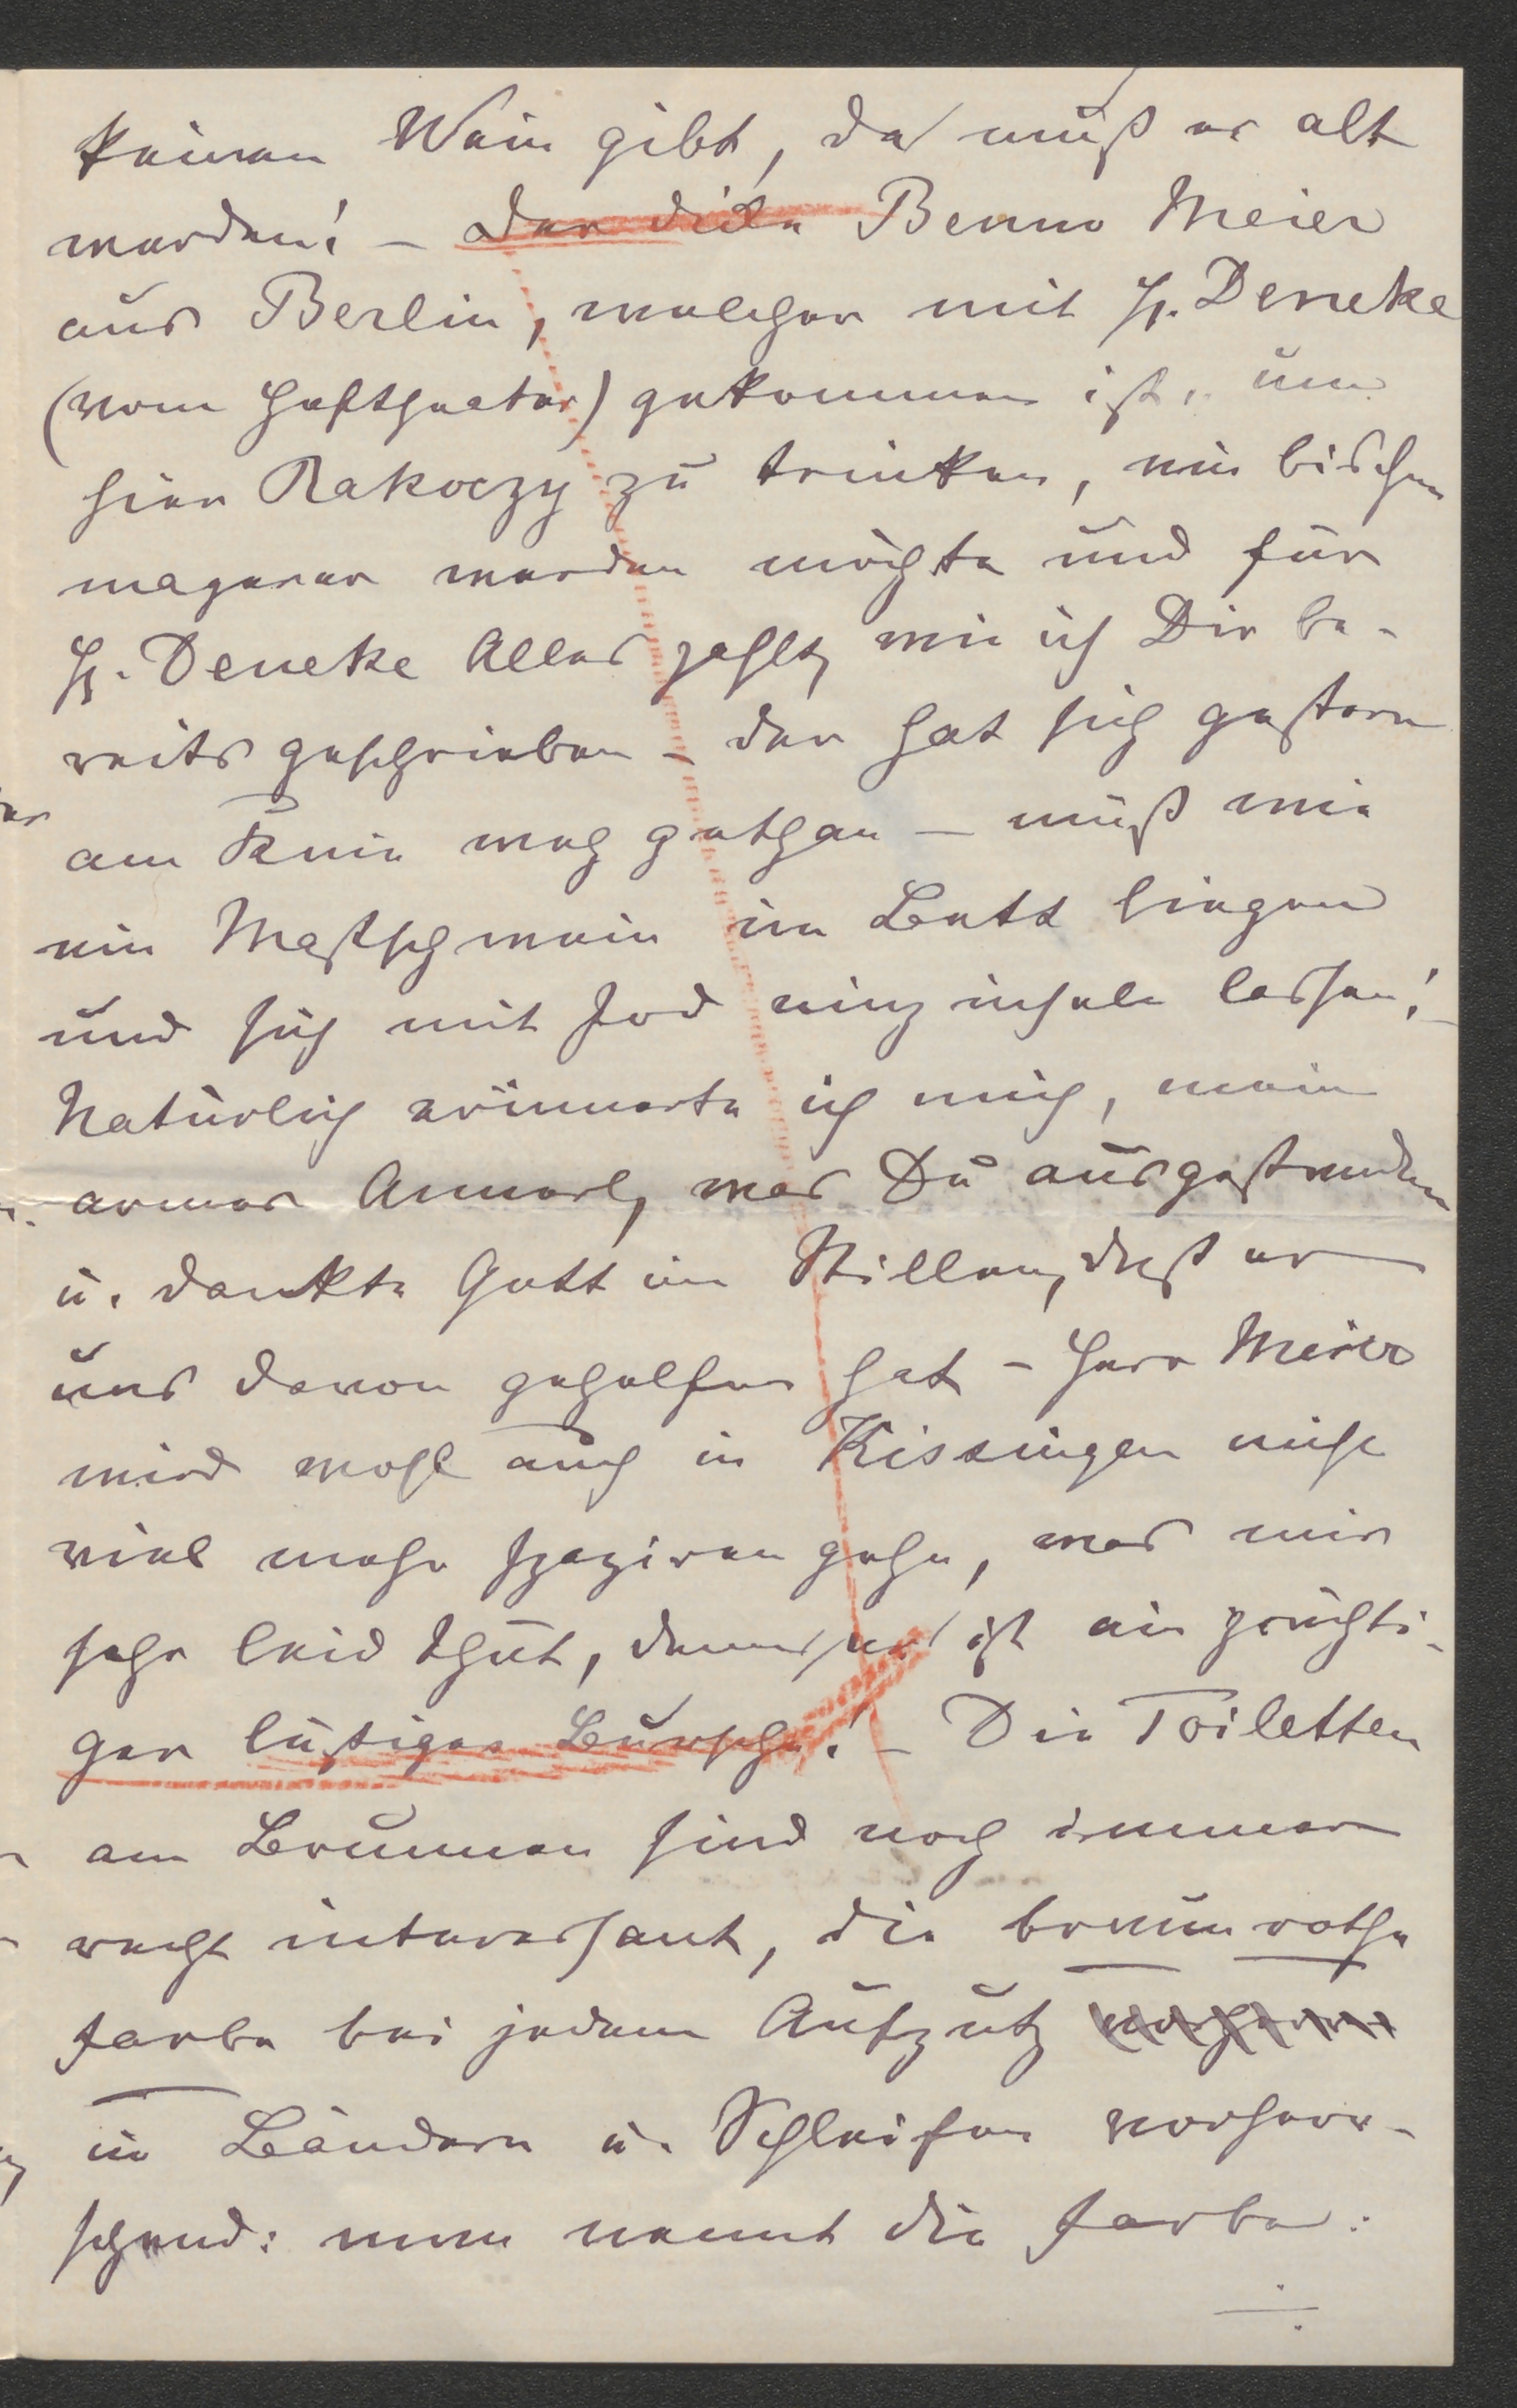 keinen Wein gibt, da muß er alt
werden! – Der dicke Benno Meier
aus Berlin, welcher mit H. Deneke
(vom Hoftheater) gekommen ist, um
hier Rakoczy zu trinken, ein bischen
magerer werden möchte und für
H. Deneke Alles zahlt, wie ich Dir be-
reits geschrieben – der hat sich gestern
am Knie weh gethan – muß wie
ein Mastschwein im Bett liegen
und sich mit Jod einpinseln lassen! –
Natürlich erinnerte ich mich, mein
armes Annerl, was Du ausgestanden
u. dankte Gott im Stillen, daß er
uns davon geholfen hat – Herr Meier
wird wohl auch in Kissingen nicht
viel mehr spaziren gehn, was mir
sehr leid thut, denn er ist ein prächti-
ger lustiger Bursche! – Die Toiletten
am Brunnen sind noch immer
recht interessant, die braunrothe
Farbe bei jedem Aufputz
in Bändern u. Schleifen vorherr-
schend: man nennt die Farbe: